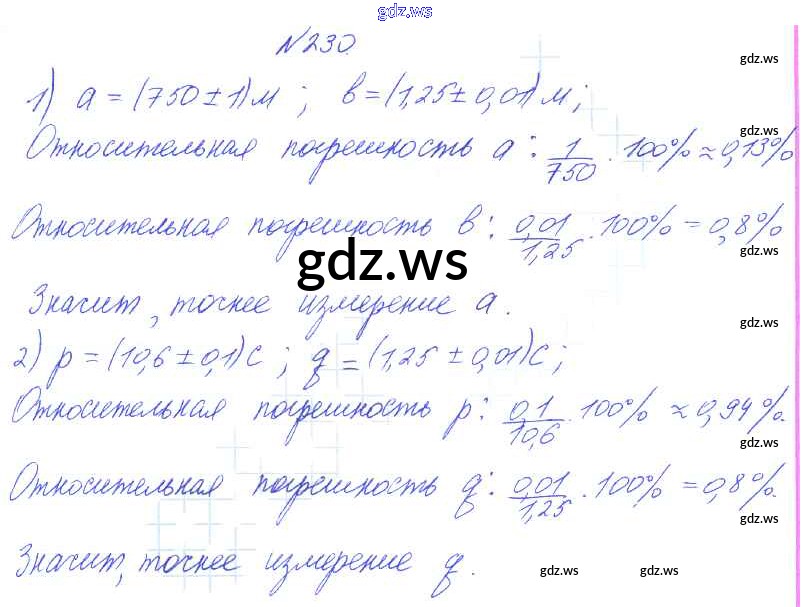 gdz.ws
N 230.
gdz.ws
1) a = (750 ± 1) м ; в = (1,25 ± 0,01) м ;
gdz.ws
Относительная погрешность a : 1/750 · 100% ≈ 0,13%
Относительная погрешность в : 0,01/1,25 · 100% = 0,8%
gdz.ws
gdz.ws
Значит, точнее измерение a.
gdz.ws
2) p = (10,6 ± 0,1) с ; q = (1,25 ± 0,01) с ;
Относительная погрешность p : 0,1/10,6 · 100% ≈ 0,94%.
gdz.ws
Относительная погрешность q : 0,01/1,25 · 100% = 0,8%.
gdz.ws
Значит, точнее измерение q.
gdz.ws gdz.ws